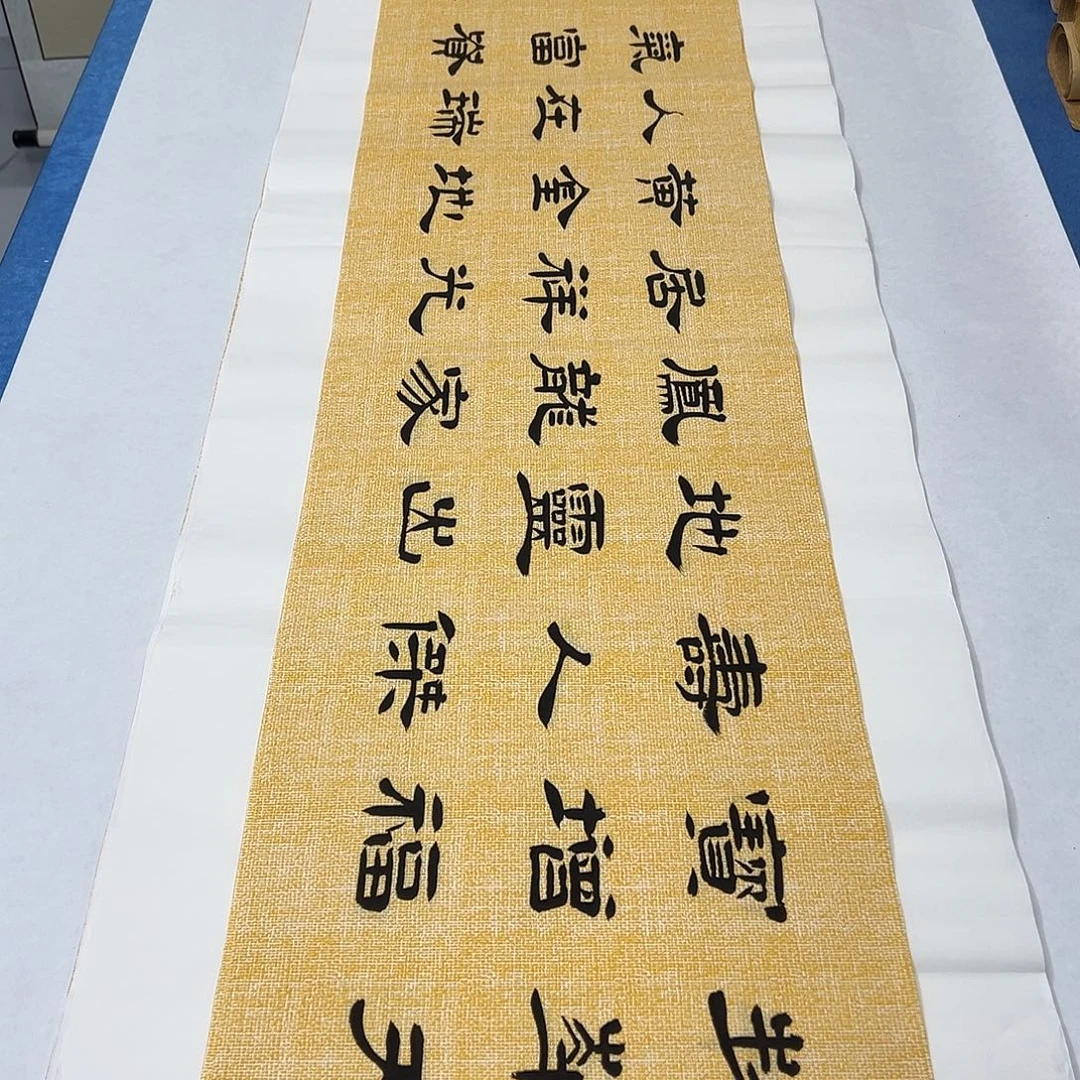 天
寶增福
壽人傑
地靈出
鳳龍家
居祥光
黃金地
人在瑞
氣富